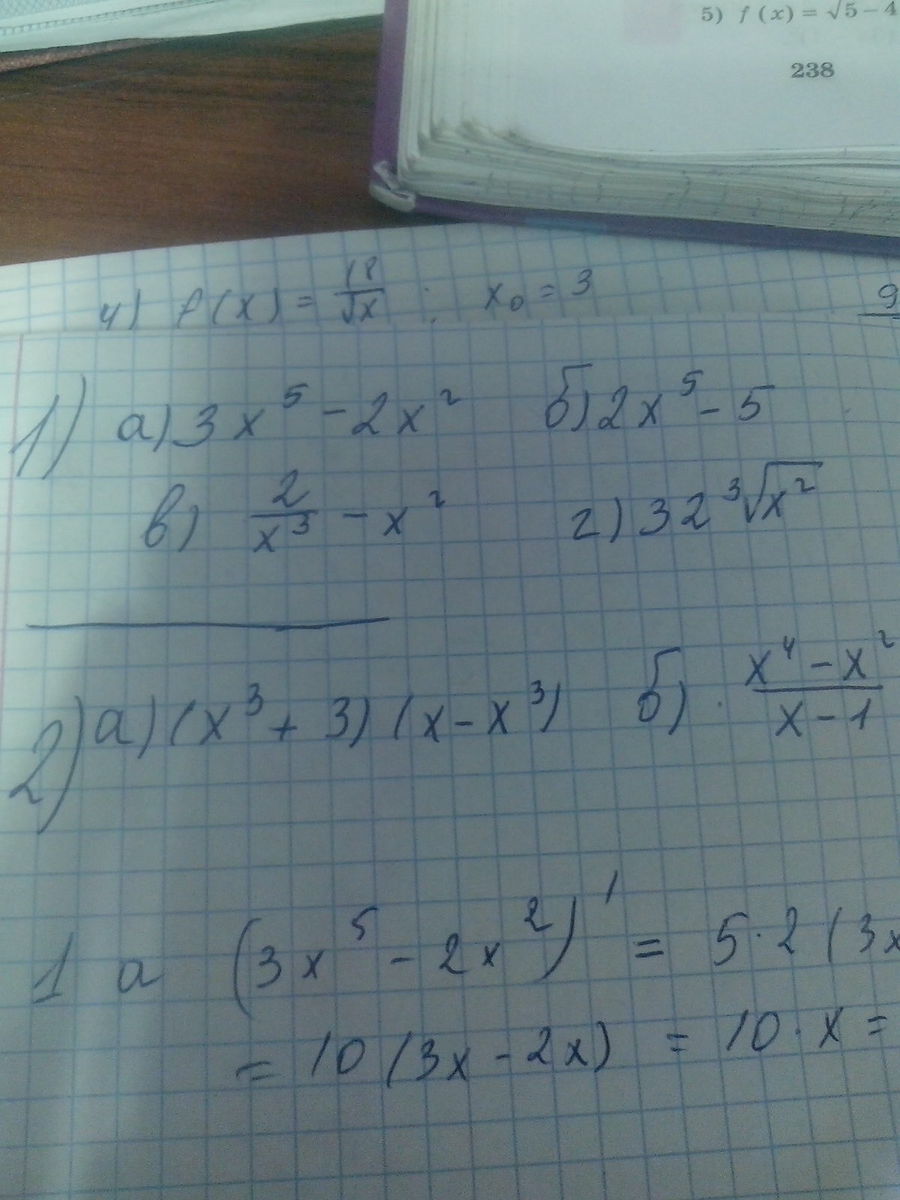 5) f (x) = √5 – 4
238
4) f(x) = 18/√x ; x₀ = 3
9
1) а) 3x⁵ - 2x² б) 2x⁵ - 5
в) 2/x³ - x² г) 32 ³√x²
2) а) (x³ + 3) (x - x³) б) (x⁴ - x²)/(x - 1)
1 а (3x⁵ - 2x²)' = 5·2 (3x
= 10 (3x - 2x) = 10 · x =